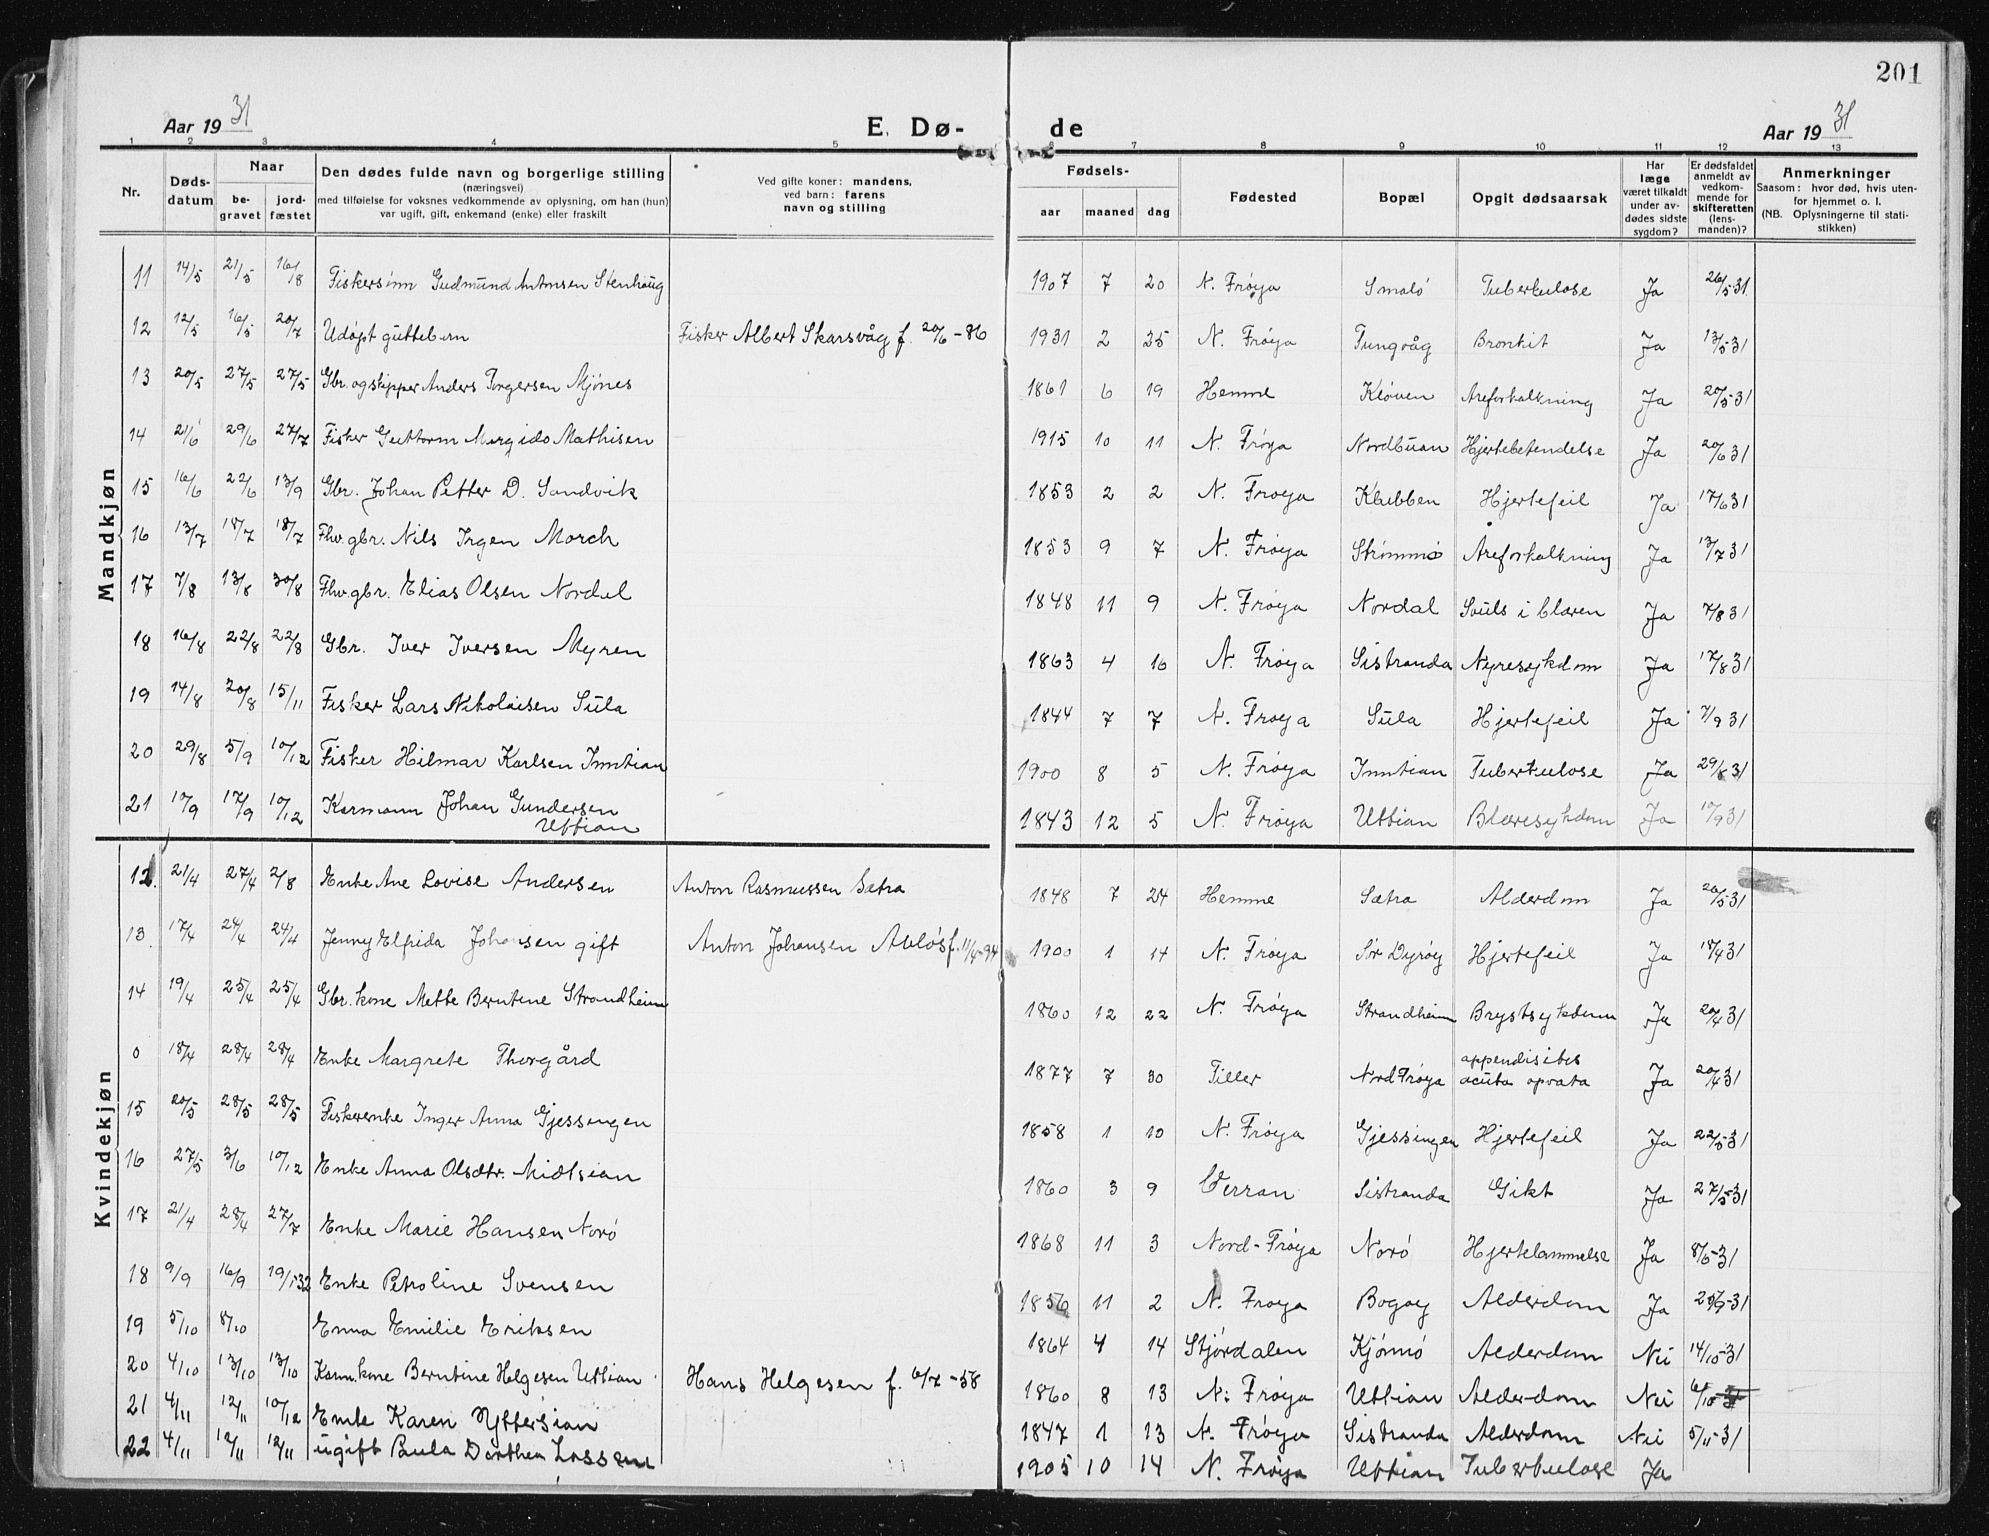 201
Aar 1931 E. Dø- de Aar 1931
1 2 3 4 5 6 7 8 9 10 11 12 13
Nr. Døds-datum Naar begravet jordfæstet Den dødes fulde navn og borgerlige stilling (næringsvei) med tilføielse for voksnes vedkommende av oplysning, om han (hun) var ugift, gift, enkemand (enke) eller fraskilt Ved gifte koner: mandens, ved barn: farens navn og stilling Fødsels- aar maaned dag Fødested Bopæl Opgit dødsaarsak Har læge været tilkaldt under avdødes sidste sygdom? Er dødsfaldet anmeldt av vedkommende for skifteretten (lensmanden)? Anmerkninger Saasom: hvor død, hvis utenfor hjemmet o. l. (NB. Oplysningerne til statistikken)
Mandkjøn
11 14/5 21/5 16/8 Fiskersønn Gudmund Antonsen Stenhaug 1907 7 20 N. Frøya Smalø Tuberkulose Ja 26/5 31
12 12/5 16/5 20/7 Udøpt guttebarn Fisker Albert Skarsvåg f. 20/6-86 1931 2 25 N. Frøya Tungvåg Bronkit Ja 13/5 31
13 20/5 27/5 27/5 Gbr. og skipper Anders Torgersen Mjønes 1861 6 19 Hemne Kløven Areforkalkning Ja 20/5 31
14 21/6 29/6 27/7 Fisker Guttorm Margido Mathisen 1915 10 11 N. Frøya Nordbuan Hjertebetendelse Ja 20/6 31
15 16/6 22/6 13/9 Gbr. Johan Petter D. Sandvik 1853 2 2 N. Frøya Klubben Hjertefeil Ja 17/6 31
16 13/7 18/7 18/7 Fhv. gbr. Nils Irgen Morch 1853 9 7 N. Frøya Strømmø Åreforkalkning Ja 13/7 31
17 7/8 13/8 30/8 Fhv. gbr. Elias Olsen Nordal 1848 11 9 N. Frøya Nordal Svuls i blæren Ja 7/8 31
18 16/8 22/8 22/8 Gbr. Iver Iversen Myren 1863 4 16 N. Frøya Sistranda Nyresykdom Ja 17/8 31
19 14/8 20/8 15/11 Fisker Lars Nikolaisen Sula 1844 7 7 N. Frøya Sula Hjertefeil Ja 7/9 31
20 29/8 5/9 10/12 Fisker Hilmar Karlsen Inntian 1900 8 5 N. Frøya Inntian Tuberkulose Ja 29/8 31
21 10/9 17/9 10/12 Kårmann Johan Gundersen Uttian 1843 12 5 N. Frøya Uttian Blæresykdom Ja 10/9 31
Kvindekjøn
12. 21/4 27/4 2/8 Enke Ane Lovise Andersen Anton Rasmussen Sætra 1848 7 24 Hemne Sætra Alderdom Ja 20/5 31
13. 17/4 24/4 24/4 Jenny Elfrida Johansen gift Anton Johansen Avløs f. 11/4-94 1900 1 14 N. Frøya Sør Dyrøy Hjertefeil Ja 18/4 31
14 19/4 25/4 25/4 Gbr. kone Mette Berntine Strandheim 1860 12 22 N. Frøya Strandheim Brystsykdom Ja 20/4 31
0 18/4 28/4 28/4 Enke Margrete Thorgård 1877 7 30 Tiller Nord Frøya appendisites acuta oprata Ja 20/4 31
15 20/5 28/5 28/5 Fiskerenke Inger Anna Gjessingen 1858 1 10 N. Frøya Gjessingen Hjertefeil Ja 22/5-31
16 27/5 3/6 10/12 Enke Anna Olsdtr. Midtsian 1860 3 9 Verran Sistranda Gikt Ja 27/5-31
17 21/4 28/4 27/7 Enke Marie Hansen Norø 1868 11 3 Nord-Frøya Norø Hjertelammelse Ja 8/6-31
18 9/9 16/9 19/1 32 Enke Petroline Svensen 1856 11 2 N. Frøya Bogøy Alderdom Ja 20/9-31
19 5/10 8/10 Enna Emilie Eriksen 1864 4 14 Stjørdalen Kjønnø Alderdom Nei 14/10-31
20 4/10 13/10 13/10 Kårm. kone Berntine Helgesen Uttian. Hans Helgesen f. 6/7-58 1860 8 13 N. Frøya Uttian Alderdom Nei 6/10-31
21 4/11 12/11 10/12 Enke Karen Yttersian 1847 1 13 N. Frøya Sistranda Alderdom Nei 5/11-31
22 4/11 12/11 12/11 ugift Paula Dorthea Lassen 1905 10 14 N. Frøya Uttian Tuberkulose Ja